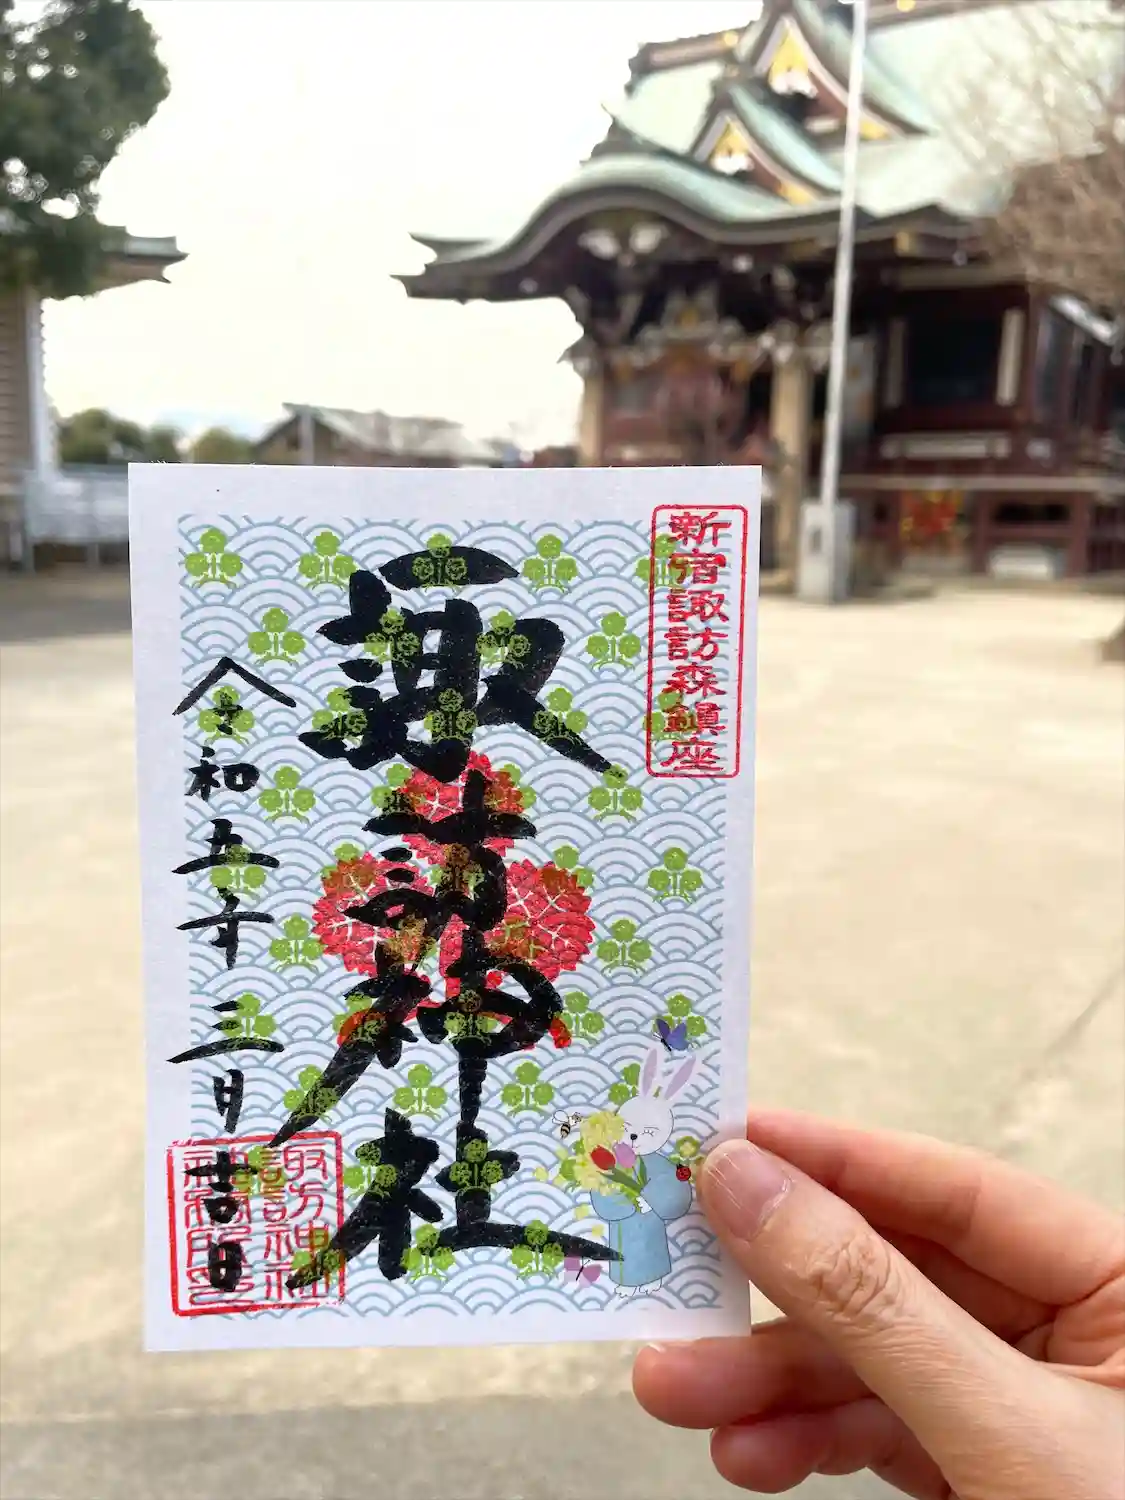 新宿諏訪森鎮座
諏訪神社
令和五年三月吉日
諏訪神社
神璽